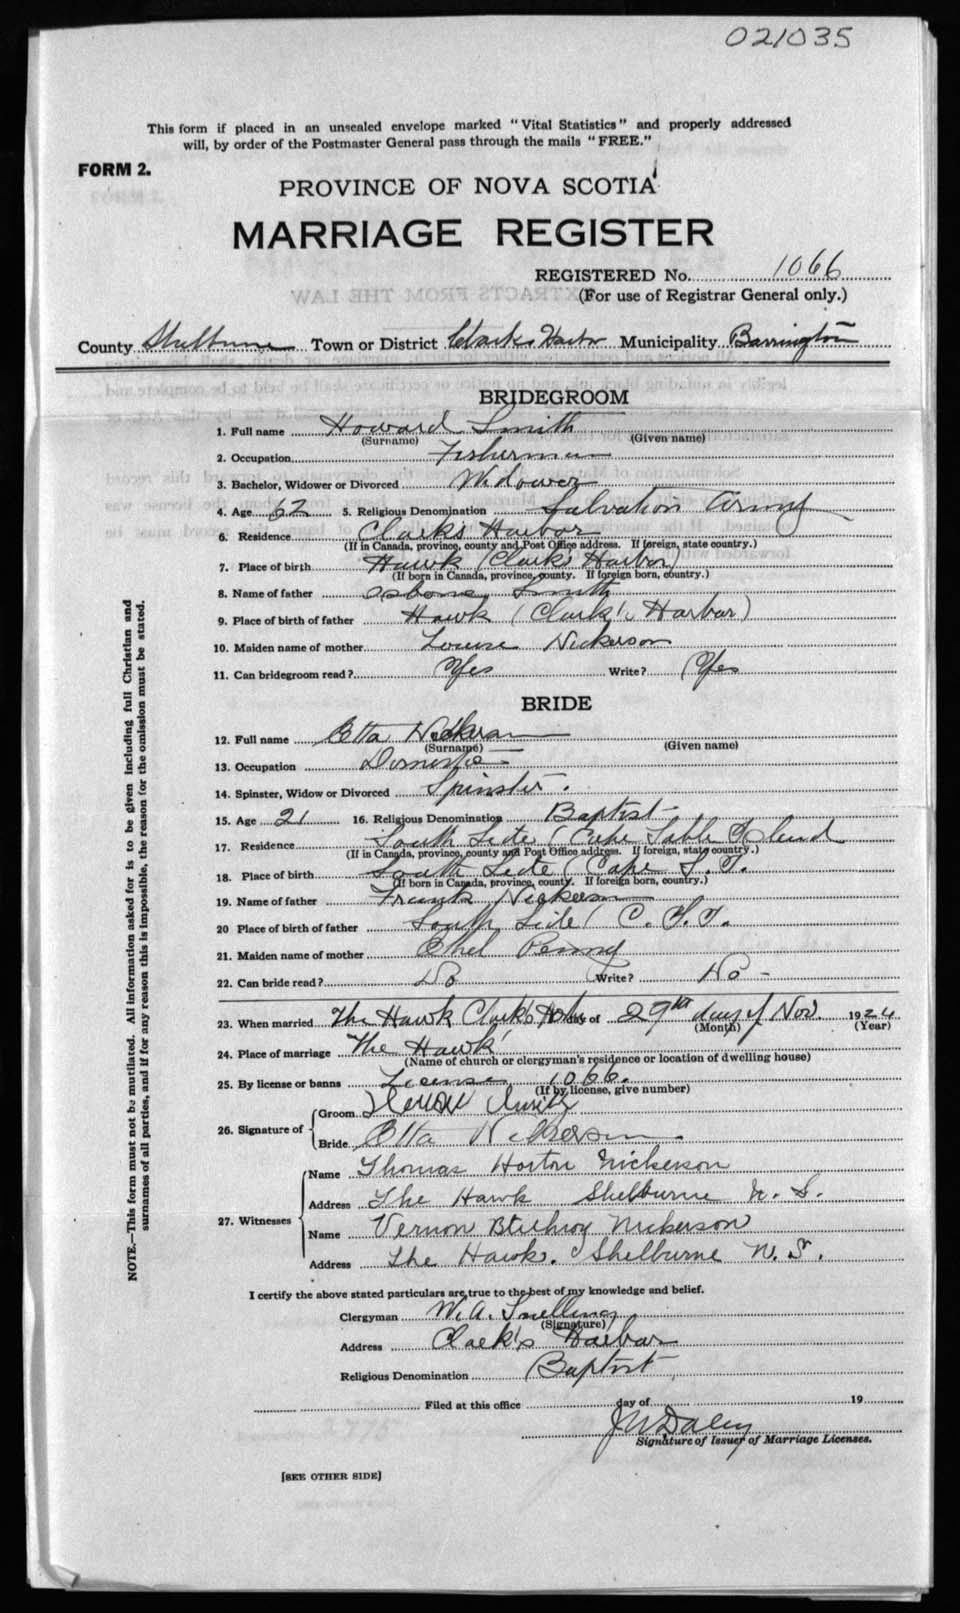 021035
This form if placed in an unsealed envelope marked "Vital Statistics" and properly addressed
will, by order of the Postmaster General pass through the mails "FREE."
FORM 2.
PROVINCE OF NOVA SCOTIA
MARRIAGE REGISTER
REGISTERED No. 1066
(For use of Registrar General only.)
County Shelburne Town or District Clarks Harbor Municipality Barrington
BRIDEGROOM
1. Full name Howard Smith
(Surname) (Given name)
2. Occupation Fisherman
3. Bachelor, Widower or Divorced Widower
4. Age 62 5. Religious Denomination Salvation Army
6. Residence Clarks Harbor
(If in Canada, province, county and Post Office address. If foreign, state country.)
7. Place of birth Hawk (Clark's Harbor)
(If born in Canada, province, county. If foreign born, country.)
8. Name of father Smith
9. Place of birth of father Hawk (Clark's Harbor)
10. Maiden name of mother Louise Nickerson
11. Can bridegroom read? Yes Write? Yes
BRIDE
12. Full name Etta Nickerson
(Surname) (Given name)
13. Occupation Domestic
14. Spinster, Widow or Divorced Spinster.
15. Age 21 16. Religious Denomination Baptist
17. Residence South Side (Cape Sable Island
(If in Canada, province, county and Post Office address. If foreign, state country.)
18. Place of birth South Side (Cape S. I.
(If born in Canada, province, county. If foreign born, country.)
19. Name of father Frank Nickerson
20 Place of birth of father South Side (C. S. I.
21. Maiden name of mother Ethel Penny
22. Can bride read? No Write? No -
23. When married The Hawk Clark's Hbr day of 29th day of Nov. 1924
(Month) (Year)
24. Place of marriage The Hawk
(Name of church or clergyman's residence or location of dwelling house)
25. By license or banns License 1066.
(If by license, give number)
26. Signature of
Groom Smith
Bride Etta Nickerson
27. Witnesses
Name Thomas Horton Nickerson
Address The Hawk Shelburne N. S.
Name Vernon Nickerson
Address The Hawk. Shelburne N. S.
I certify the above stated particulars are true to the best of my knowledge and belief.
Clergyman W. A. Snelling
(Signature)
Address Clark's Harbor
Religious Denomination Baptist
Filed at this office day of 19
J W Daley
Signature of Issuer of Marriage Licenses.
[SEE OTHER SIDE]
NOTE.—This form must not be mutilated. All information asked for is to be given including full Christian and
surnames of all parties, and if for any reason this is impossible, the reason for the omission must be stated.